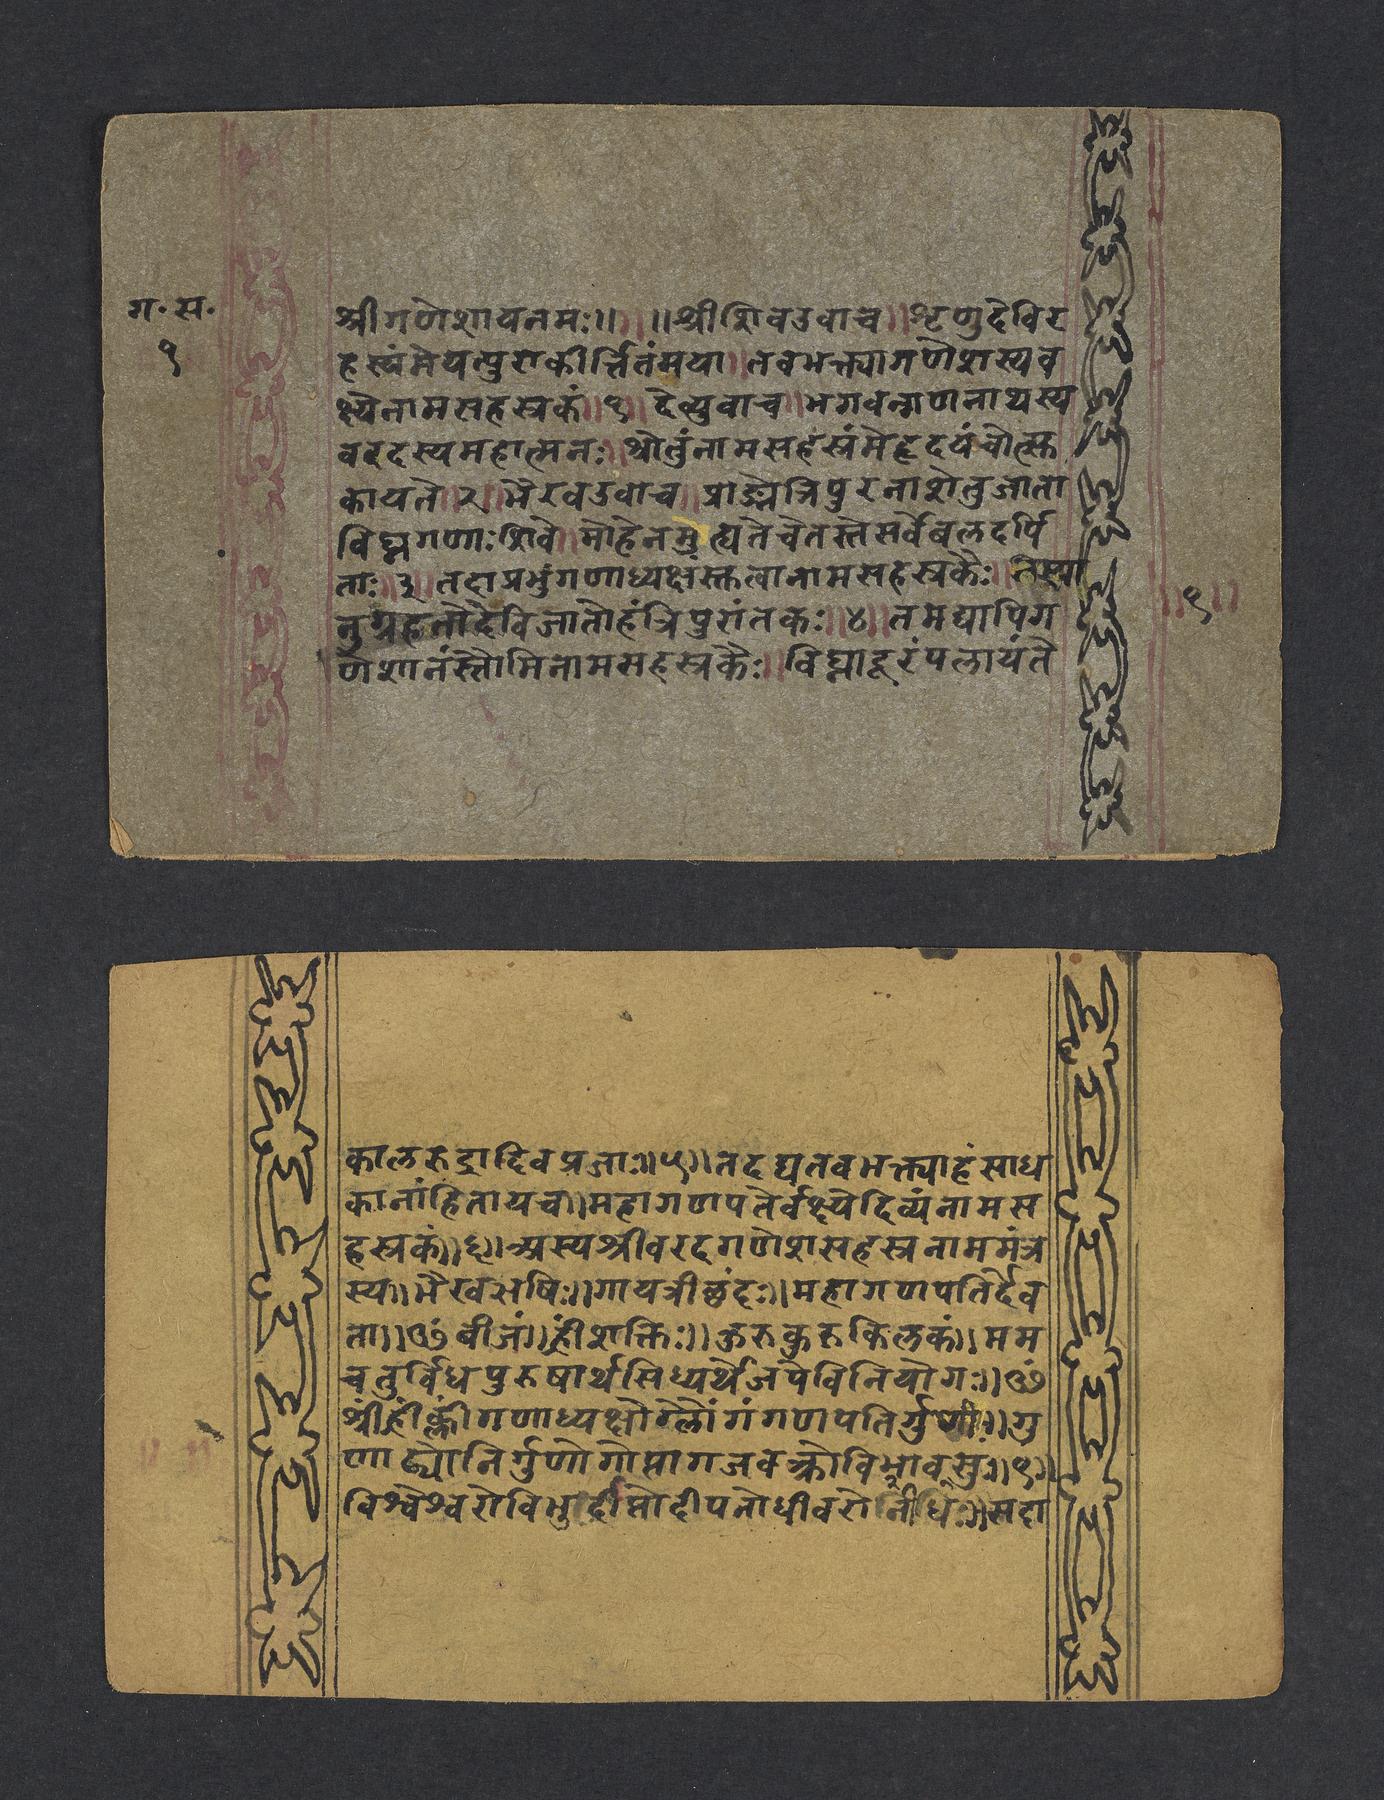 ग. स.
१
श्रीगणेशायनमः॥ ॥ ॥श्रीशिवउवाच॥शृणुदेविर
हस्यंमेयत्पुराकीर्त्तितंमया॥तवभक्त्यागणेशस्यव
क्ष्येनामसहस्रकं॥१॥देव्युवाच॥भगवन्गणनाथस्य
वरदस्यमहात्मनः॥श्रोतुंनामसहस्रंमेहृदयंचोत्सु
कायते॥२॥भैरवउवाच॥प्राङ्मेत्रिपुरनाशेतुजाता
विघ्नगणाःशिवे॥मोहेनमुह्यतेचेतस्तेसर्वेबलदर्पि
ताः॥३॥तदाप्रभुंगणाध्यक्षंस्तुत्वानामसहस्रकैः॥तस्या
नुग्रहतोदेविजातोहंत्रिपुरांतकः॥४॥तमेद्यापिग
णेशानंस्तौमिनामसहस्रकैः॥विघ्नादूरंपलायंते
॥१॥
कालरुद्रादिवप्रजाः॥५॥तदद्यतवभक्त्याहंसाध
कानांहितायच॥महागणपतेर्वक्ष्येदिव्यंनामस
हस्रकं॥६॥अस्यश्रीवरदगणेशसहस्रनाममंत्र
स्य॥भैरवऋषिः॥गायत्रीछंदः॥महागणपतिर्देव
ता॥ॐबीजं॥ह्रींशक्तिः॥कुरुकुरुकिलकं॥मम
चतुर्विधपुरुषार्थसिध्यर्थेजपेविनियोगः॥ॐ
श्रींह्रींक्लींगणाध्यक्षोग्लौंगंगणपतिर्गुणी॥गु
णाढ्योनिर्गुणोगोप्तागजवक्त्रोविभावसुः॥१॥
विश्वेश्वरोविभुर्दीप्तोदीपनोधीवरोनिधिः॥सदा